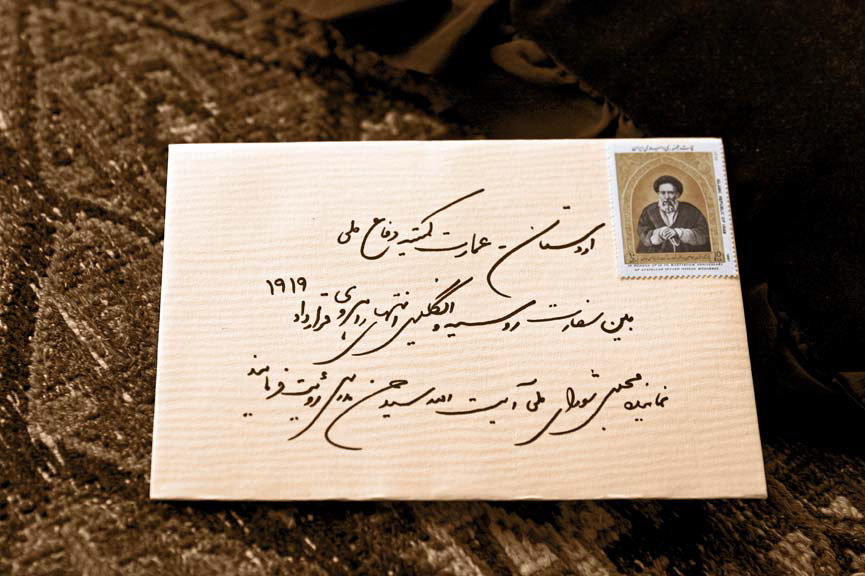 اردستان - عمارت کمیته دفاع ملی
بین سفارت روسیه و انگلیس انتهای راهروی قرارداد ۱۹۱۹
نماینده مجلس شورای ملی آیت الله سید حسن مدرس رویت فرمایند